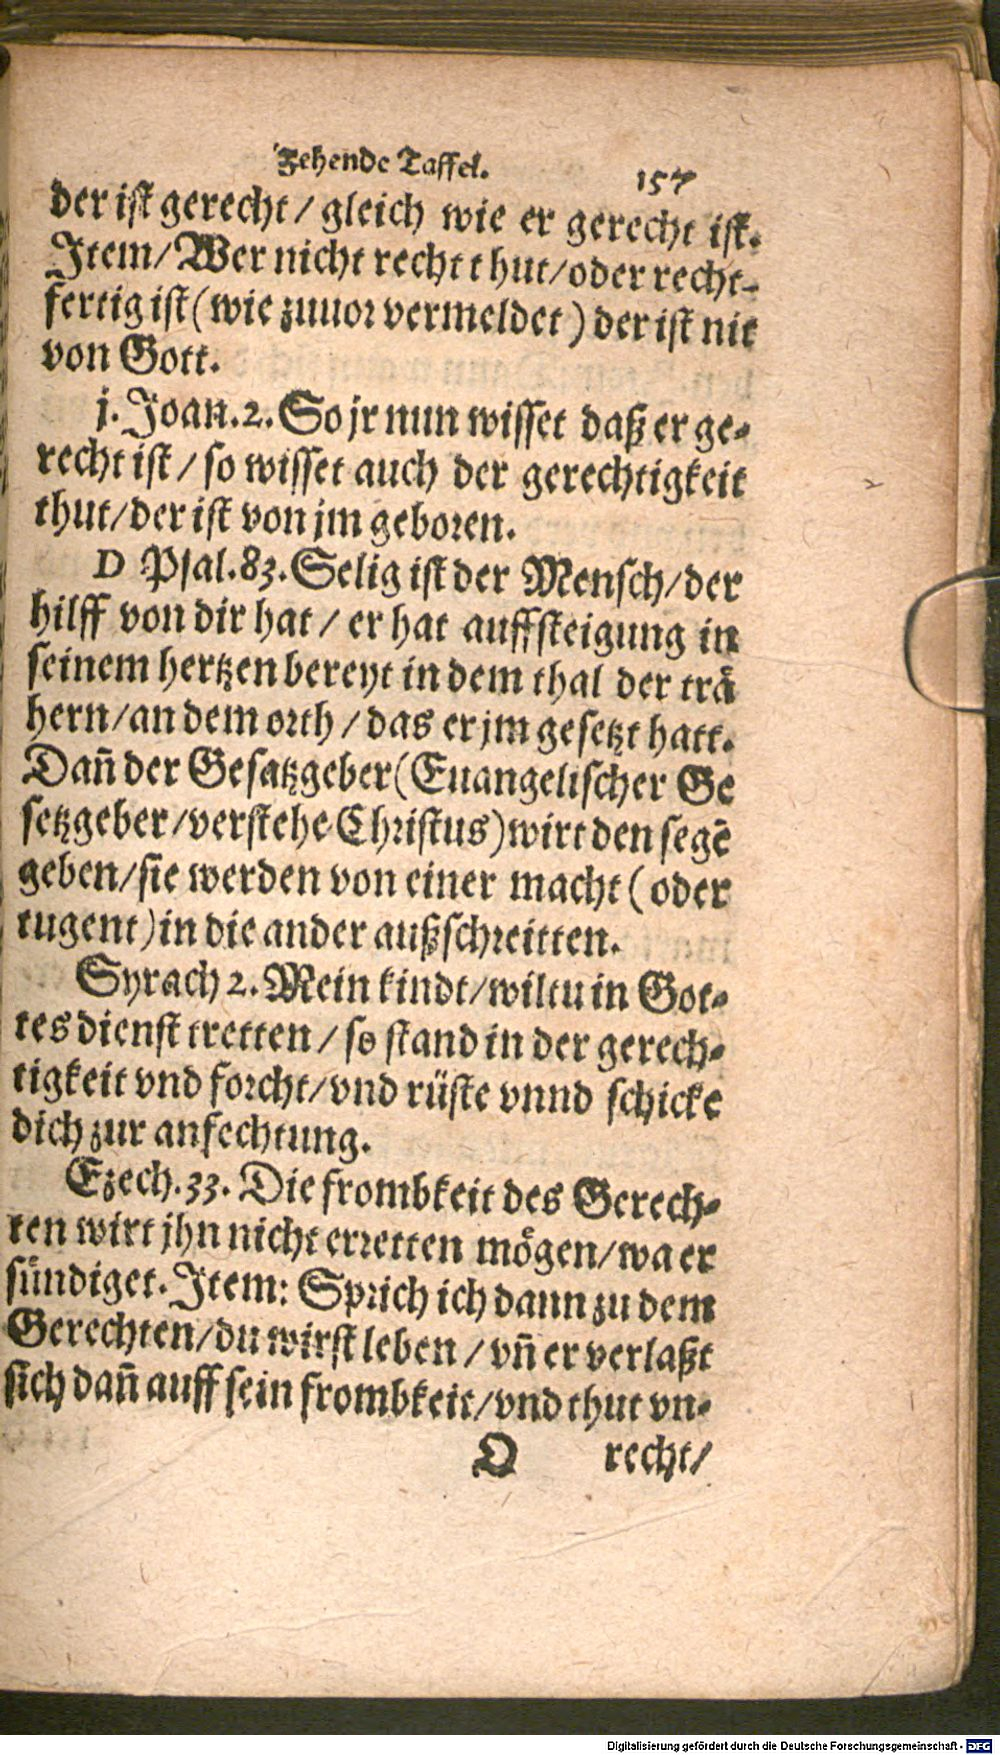 Zehende Taffel. 157
der ist gerecht/ gleich wie er gerecht ist.
Item/ Wer nicht recht thut/ oder recht-
fertig ist (wie zuuor vermeldet) der ist nit
von Gott.
j. Joan. 2. So jr nun wisset daß er ge-
recht ist/ so wisset auch der gerechtigkeit
thut/ der ist von jm geboren.
D Psal. 83. Selig ist der Mensch/ der
hilff von dir hat/ er hat auffsteigung in
seinem hertzen bereyt in dem thal der trä
hern/ an dem orth/ das er jm gesetzt hatt.
Dañ der Gesatzgeber (Euangelischer Ge
setzgeber/ verstehe Christus) wirt den segē
geben/ sie werden von einer macht (oder
tugent) in die ander außschreitten.
Syrach 2. Mein kindt/ wiltu in Got-
tes dienst tretten/ so stand in der gerech-
tigkeit vnd forcht/ vnd rüste vnnd schicke
dich zur anfechtung.
Ezech. 33. Die frombkeit des Gerech-
ten wirt jhn nicht erretten mögen/ wa er
sündiget. Item: Sprich ich dann zu dem
Gerechten/ du wirst leben/ vñ er verlaßt
sich dañ auff sein frombkeit/ vnd thut vn-
O recht/
Digitalisierung gefördert durch die Deutsche Forschungsgemeinschaft - DFG